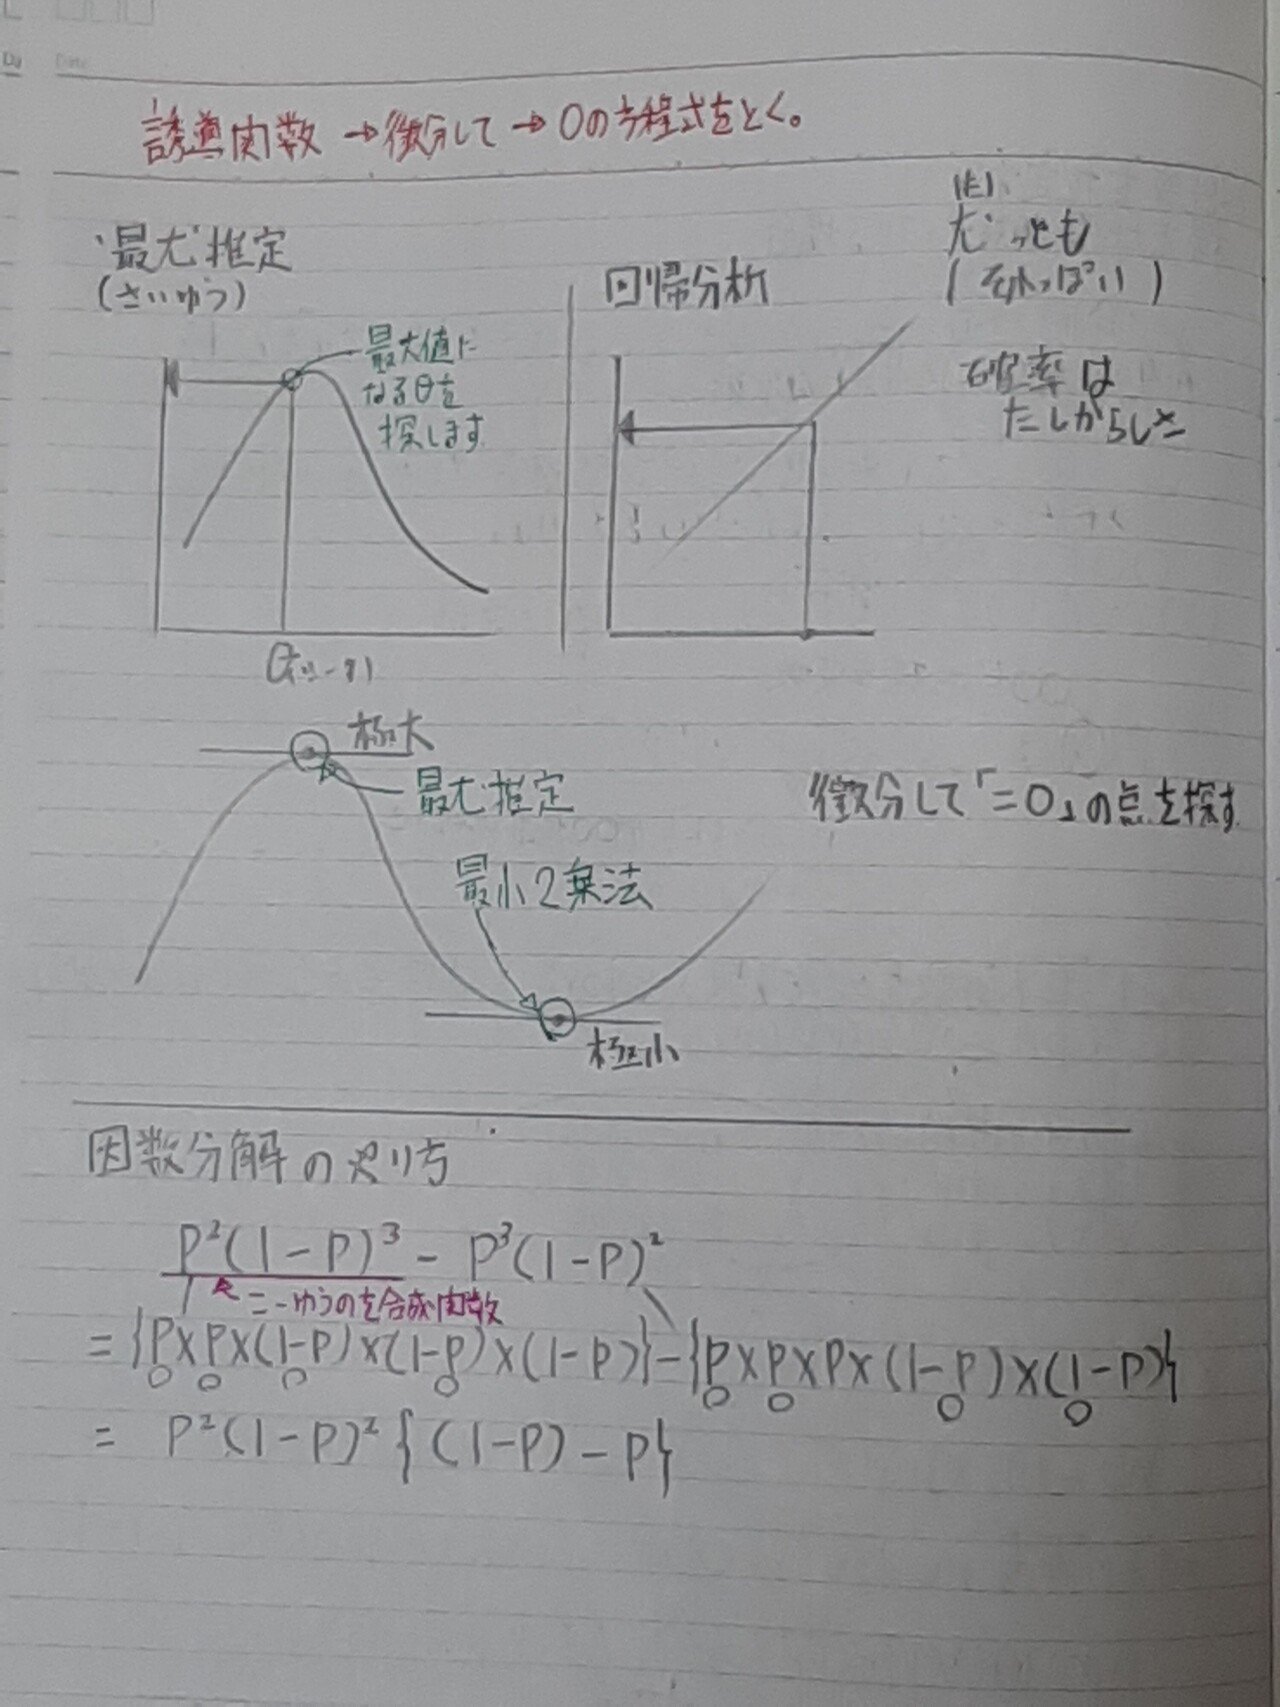 誘導関数→微分して→0の方程式をとく。
"最尤"推定
(さいゆう)
最大値に
なるθを
探します
回帰分析
(もっ)
尤っとも
(それっぽい)
確率は
たしからしさ
極大
最尤推定
微分して「=0」の点を探す
最小2乗法
極小
因数分解のやり方
P²(1-P)³ - P³(1-P)²
こーゆうのを合成関数
={P×P×(1-P)×(1-P)×(1-P)}-{P×P×P×(1-P)×(1-P)}
= P²(1-P)²{(1-P)-P}